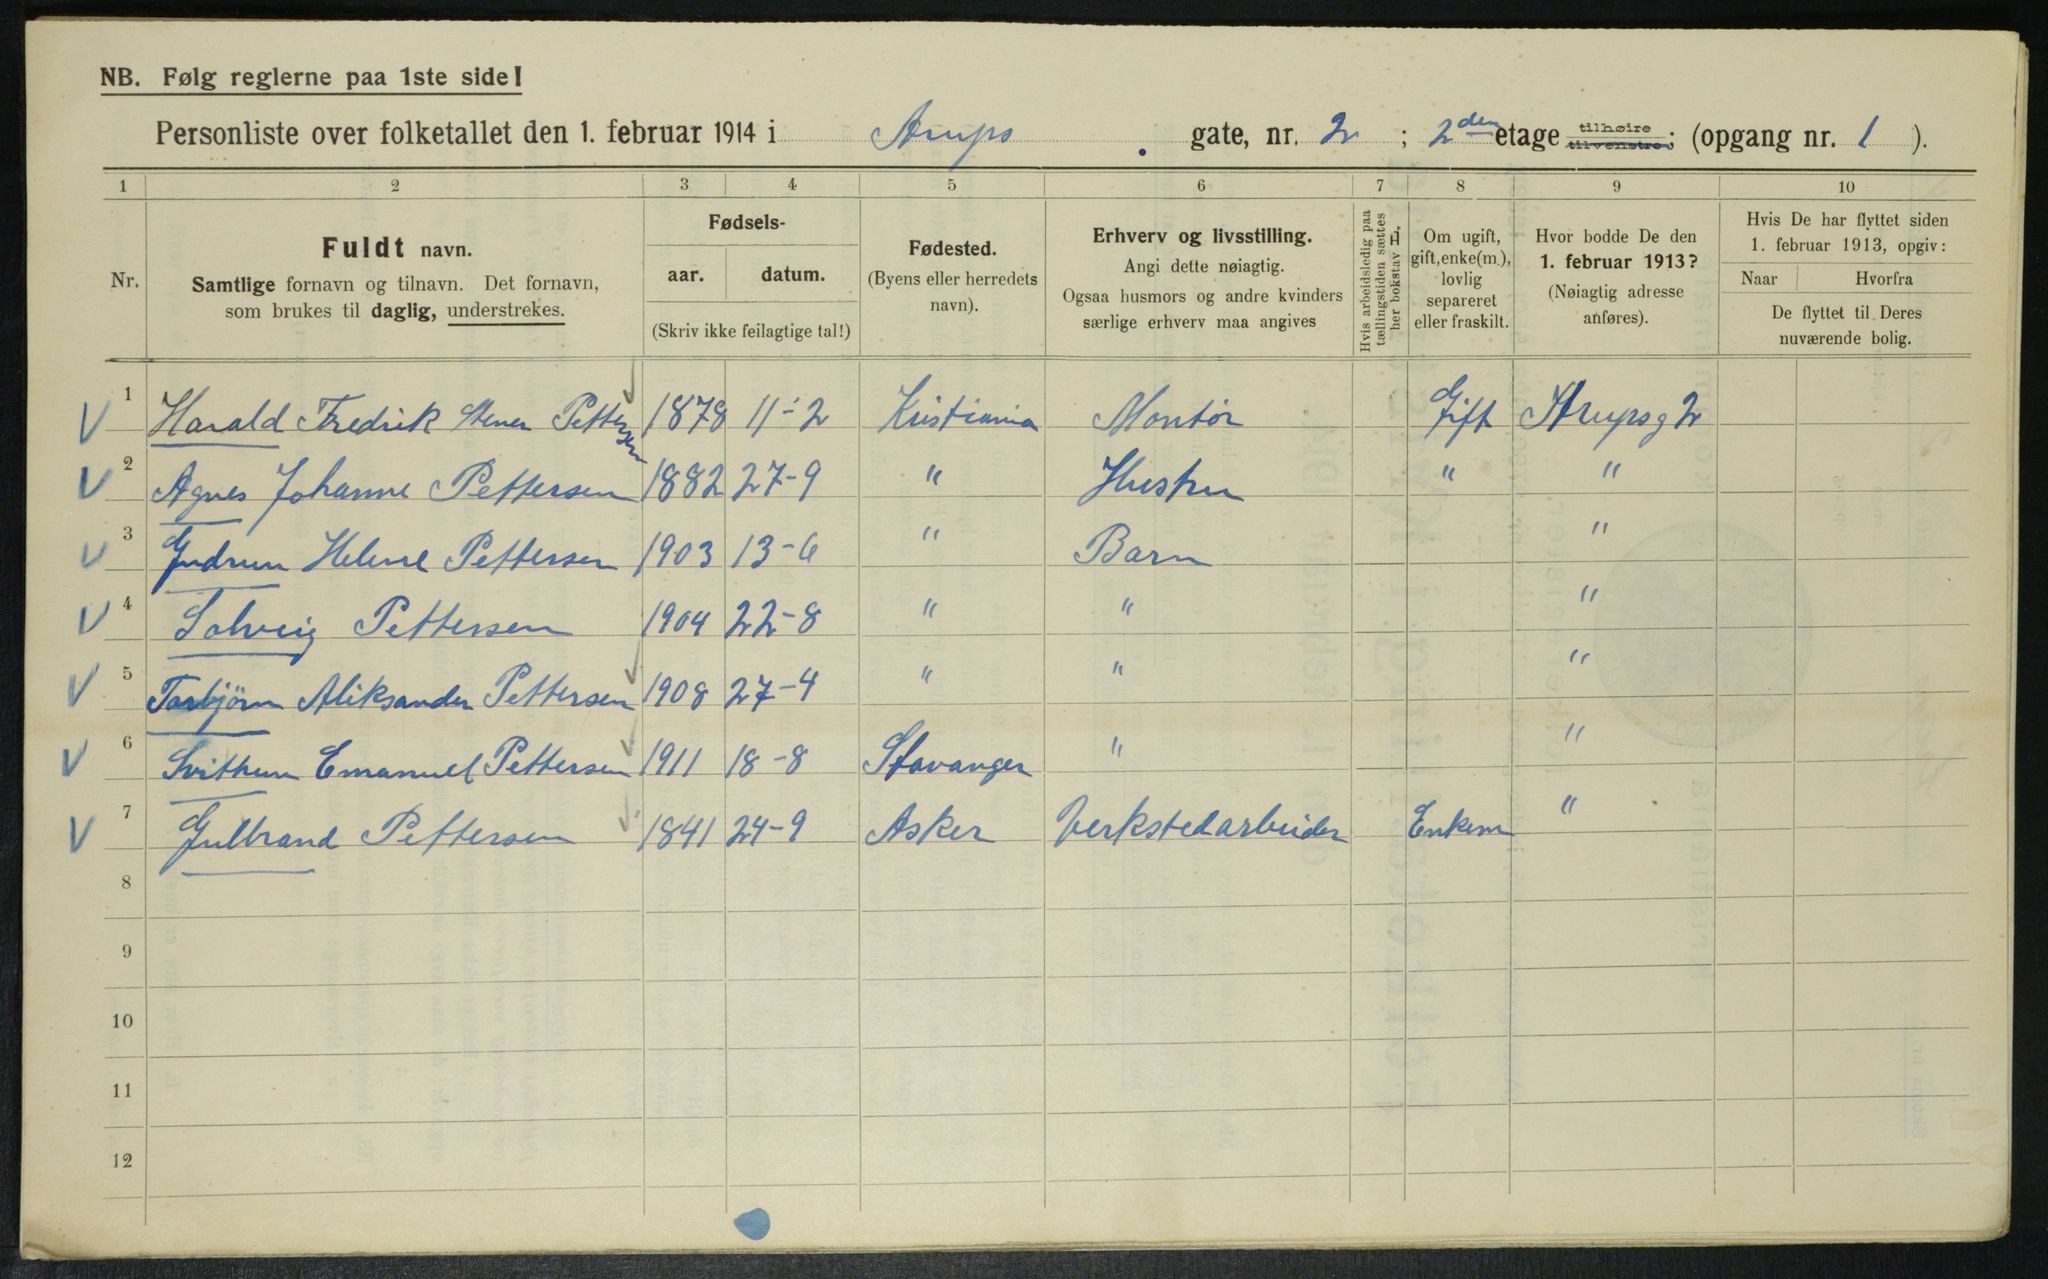 NB. Følg reglerne paa 1ste side!
Personliste over folketallet den 1. februar 1914 i Arups gate, nr. 2 ; 2den etage tilhøire tilvenstre; (opgang nr. 1 ).
1 2 3 4 5 6 7 8 9 10
Nr.
Fuldt navn.
Samtlige fornavn og tilnavn. Det fornavn,
som brukes til daglig, understrekes.
Fødsels-
aar. datum.
(Skriv ikke feilagtige tal!)
Fødested.
(Byens eller herredets
navn).
Erhverv og livsstilling.
Angi dette nøiagtig.
Ogsaa husmors og andre kvinders
særlige erhverv maa angives
Hvis arbeidsledig paa
tællingstiden sættes
her bokstav L.
Om ugift,
gift, enke(m.),
lovlig
separeret
eller fraskilt.
Hvor bodde De den
1. februar 1913?
(Nøiagtig adresse
anføres).
Hvis De har flyttet siden
1. februar 1913, opgiv:
Naar Hvorfra
De flyttet til Deres
nuværende bolig.
1 Harald Fredrik Stener Pettersen 1878 11-2 Kristiania Montør Gift Arupsg 2
2 Agnes Johanne Pettersen 1882 27-9 " Hustru " "
3 Gudrun Helene Pettersen 1903 13-6 " Barn "
4 Solveig Pettersen 1904 22-8 " " "
5 Torbjörn Aliksander Pettersen 1908 27-4 " " "
6 Svithun Emanuel Pettersen 1911 18-8 Stavanger " "
7 Gulbrand Pettersen 1841 24-9 Asker Verkstedarbeider Enkem "
8
9
10
11
12